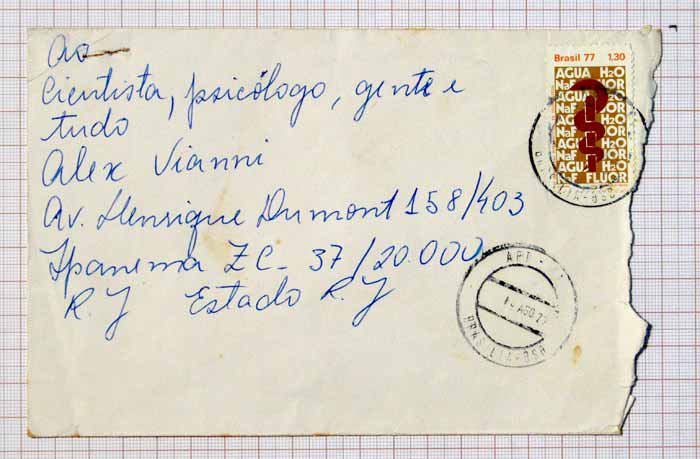 Ao
Cientista, psicólogo, gente e
tudo
Alex Vianni
Av. Henrique Dumont 158/403
Ipanema ZC- 37/20.000
R.J Estado R.J
Brasil 77 1,30
AGUA H2O
NaF FLUOR
AGUA H2O
NaF UOR
AGUA H2O
NaF UOR
AGUA H2O
NaF UOR
AGUA H2O
NaF FLUOR
BRASILIA-BSB
APT -
AGO 77
BRASILIA-BSB